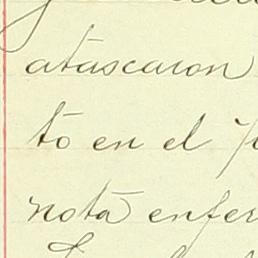 atascaron
to en el
nota enfer